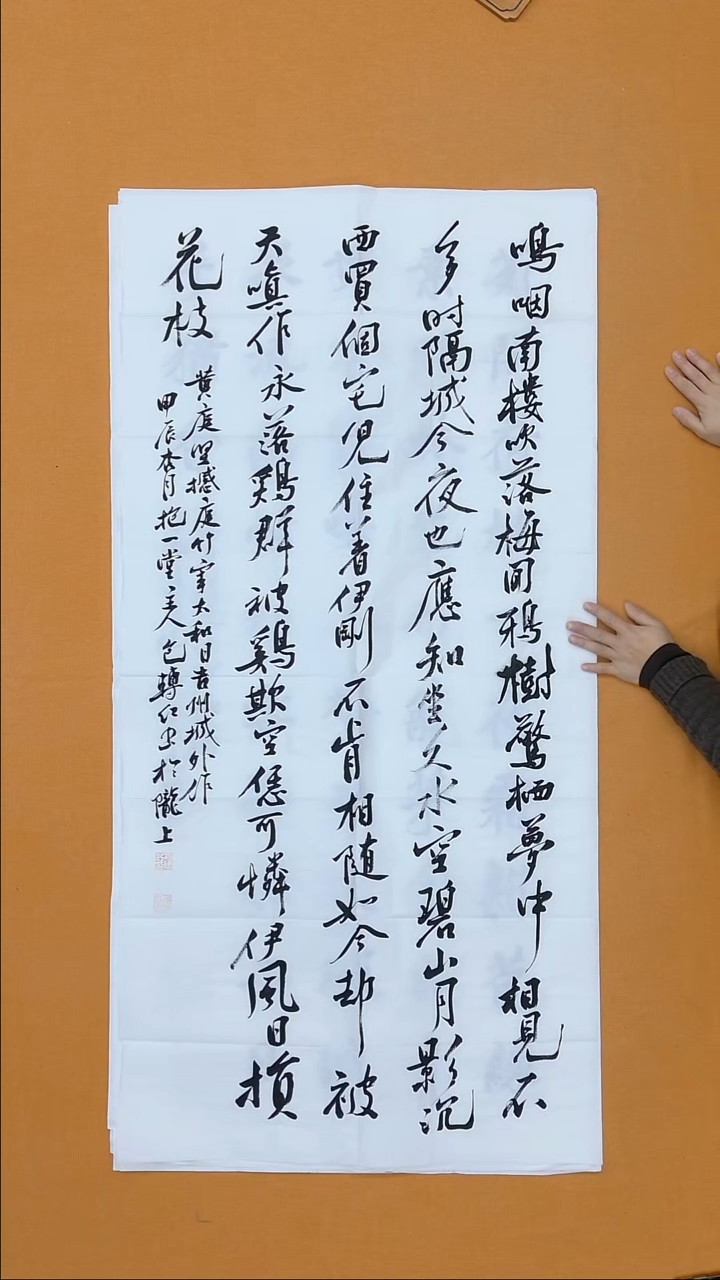 嗚咽南樓吹落梅聞鴉樹驚栖夢中相見不
多时隔城今夜也應知坐久水空碧山月影沉
西買個宅兒住着伊剛不肯相随如今却被
天嗔作永落鷄群被鷄欺空恁可憐伊風日損
花枝
黄庭坚撼庭竹宰太和日吉州城外作
甲辰杏月抱一堂主人包轉红书於隴上